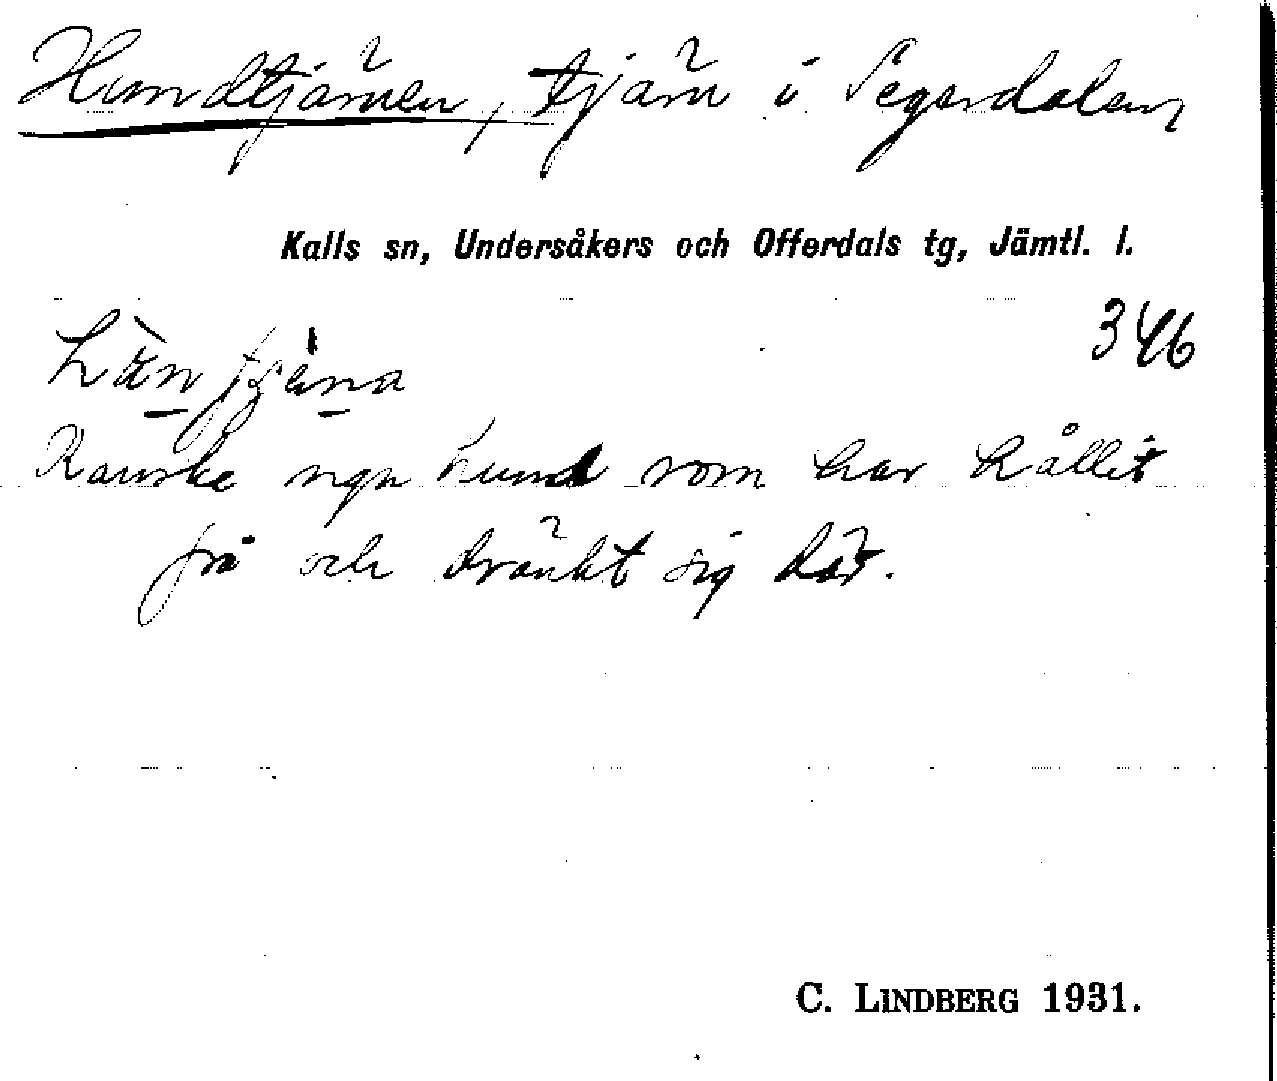 Hundtjärnen, tjärn i Segerdalen
Kalls sn, Undersåkers och Offerdals tg, Jämtl. l.
346
Kanske ngn hund som har hållit
på och dränkt sig där.
C. LINDBERG 1931.